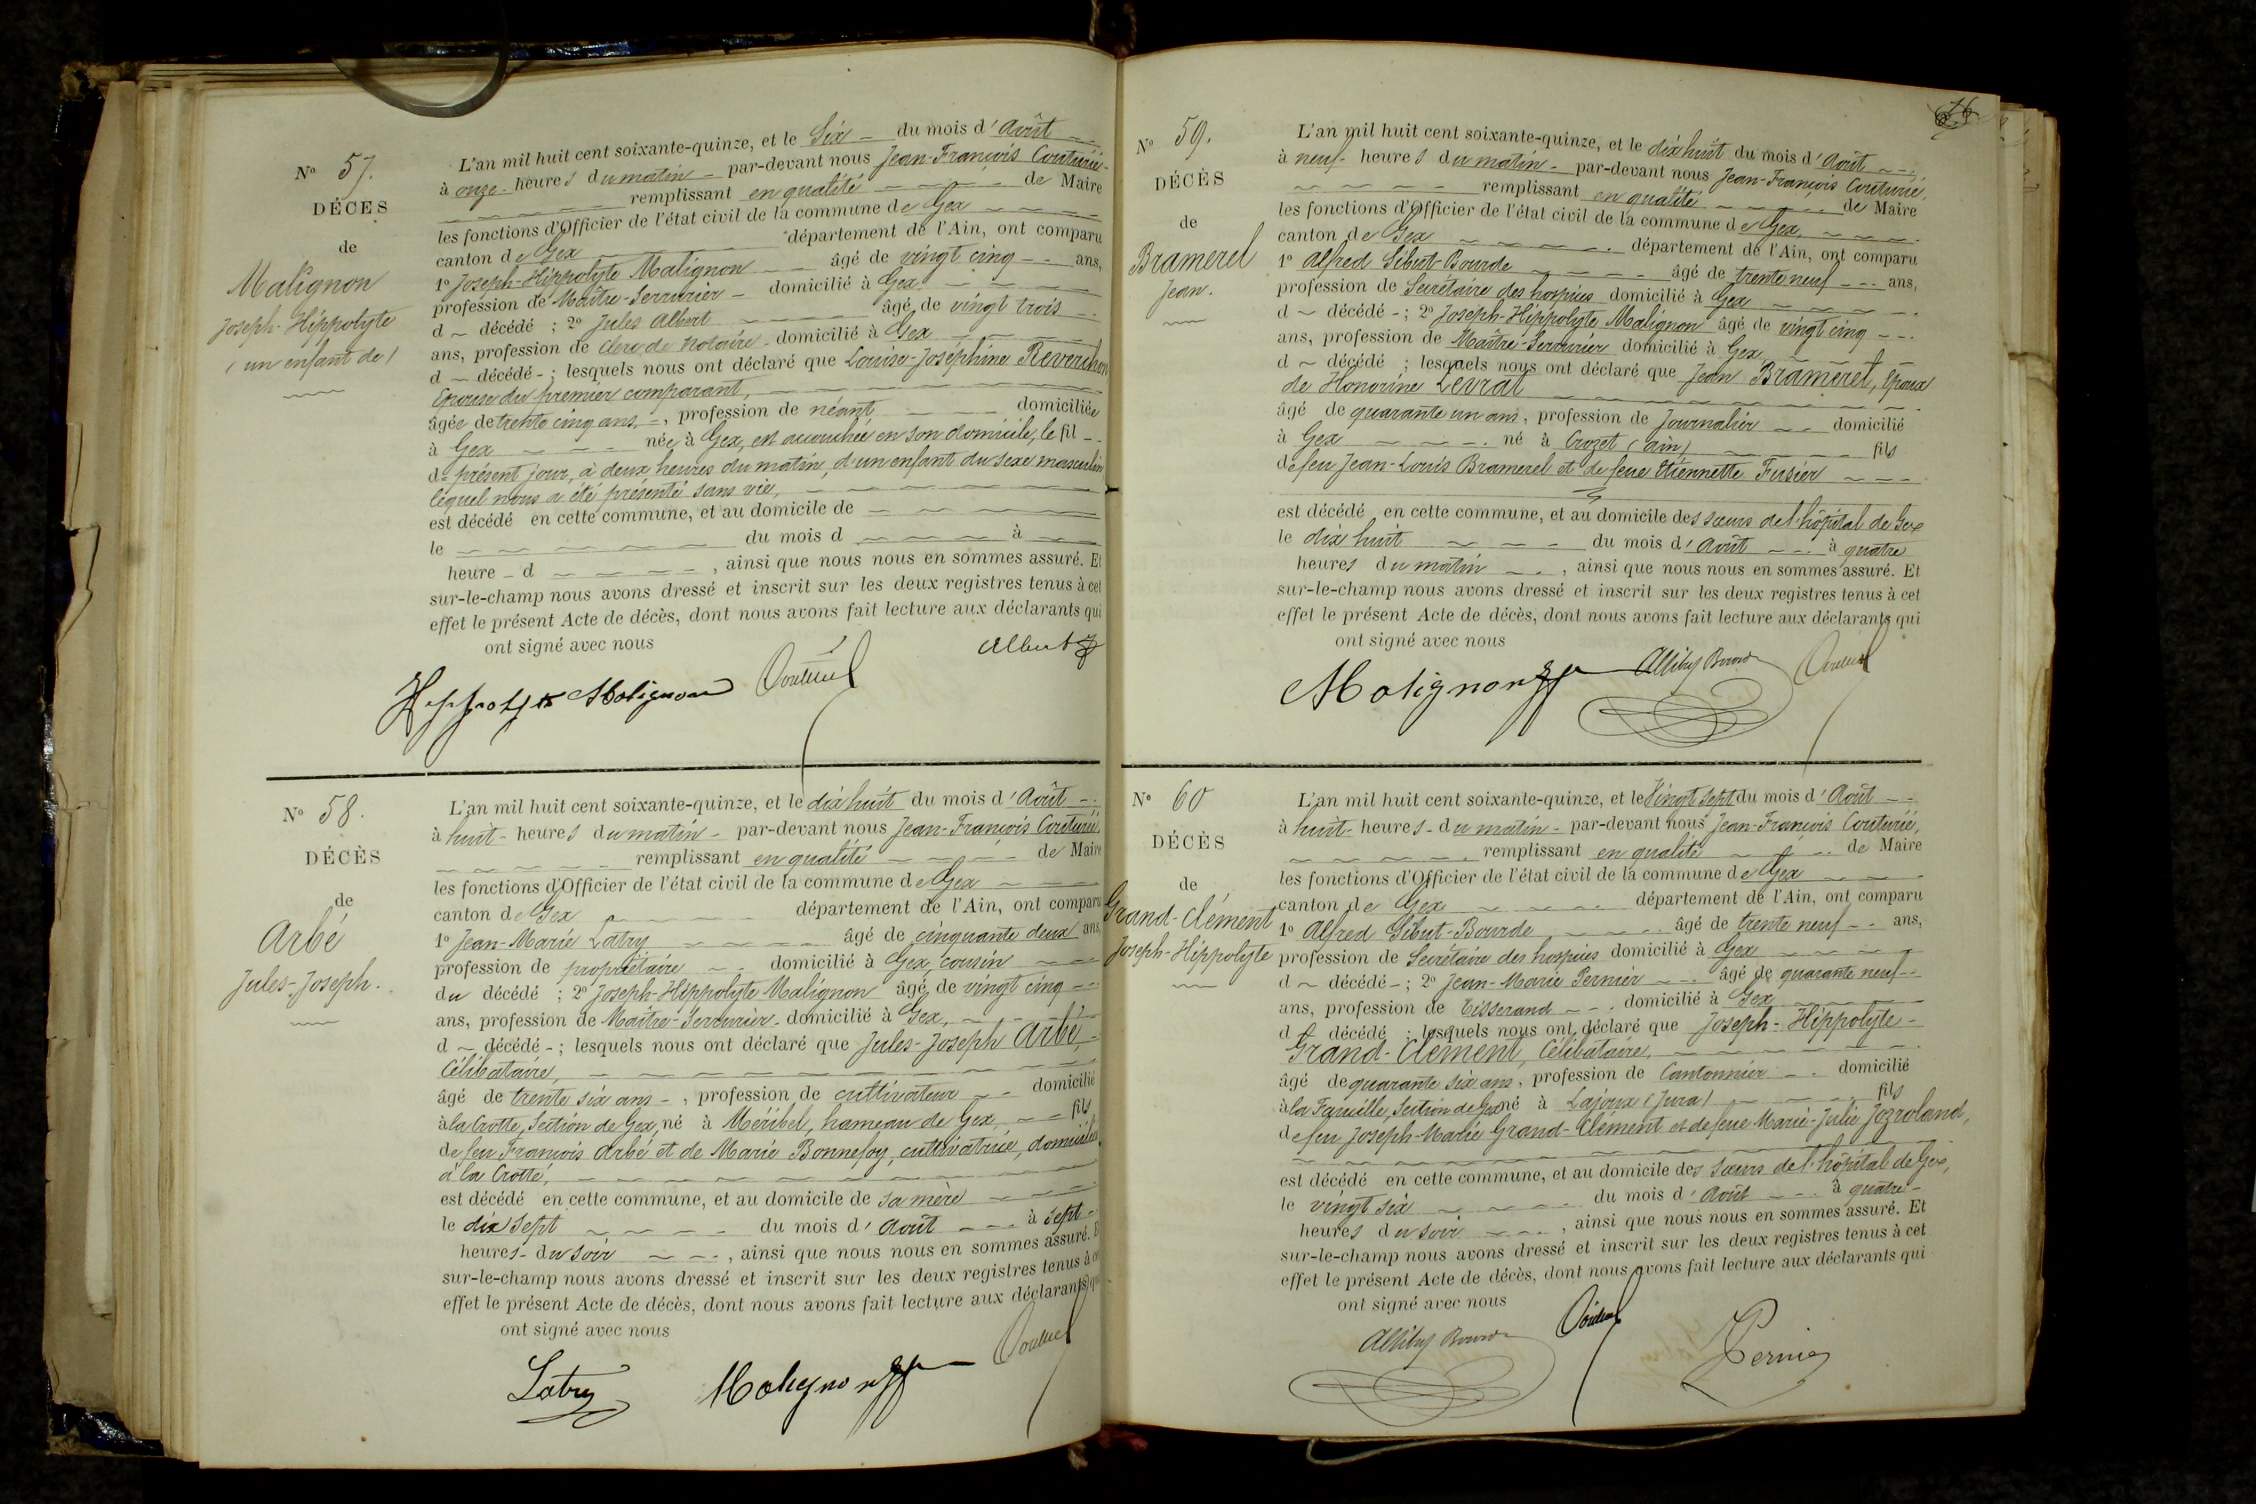 Nº 57.
DÉCES
de
Malignon
Joseph-Hippolyte
(un enfant de)
L'an mil huit cent soixante-quinze, et le Six du mois d'Août
à onze heures du matin par-devant nous Jean-François Couturié
remplissant en qualité de Maire
les fonctions d'Officier de l'état civil de la commune de Gex
canton de Gex département de l'Ain, ont comparu
1º Joseph-Hippolyte Malignon âgé de vingt cinq ans,
profession de Maître-Serrurier domicilié à Gex
d décédé ; 2º Jules Albert âgé de vingt trois
ans, profession de Clerc de Notaire domicilié à Gex
d décédé ; lesquels nous ont déclaré que Louise-Joséphine Reverchon
Epouse du premier comparant,
âgée de trente cinq ans, profession de néant domiciliée
à Gex née à Gex, est accouchée en son domicile, le fil
du présent jour, à deux heures du matin, d'un enfant du sexe masculin
lequel nous a été présenté sans vie,
est décédé en cette commune, et au domicile de
le du mois d à
heure d , ainsi que nous nous en sommes assuré. Et
sur-le-champ nous avons dressé et inscrit sur les deux registres tenus à cet
effet le présent Acte de décès, dont nous avons fait lecture aux déclarants qui
ont signé avec nous
Albert
Hippolyte Malignon Couturié
Nº 58.
DÉCÈS
de
Arbé
Jules-Joseph.
L'an mil huit cent soixante-quinze, et le dix huit du mois d'Août
à huit heures du matin par-devant nous Jean-François Couturié,
remplissant en qualité de Maire
les fonctions d'Officier de l'état civil de la commune de Gex
canton de Gex département de l'Ain, ont comparu
1º Jean-Marie Latry âgé de cinquante deux ans,
profession de propriétaire domicilié à Gex, cousin
du décédé ; 2º Joseph-Hippolyte Malignon âgé de vingt cinq
ans, profession de Maître-Serrurier domicilié à Gex,
d décédé ; lesquels nous ont déclaré que Jules-Joseph Arbé,
Célibataire,
âgé de trente six ans, profession de cultivateur domicilié
à la Crotte, Section de Gex, né à Méribel, hameau de Gex, fils
de feu François Arbé et de Marie Bonnefoy, cultivatrice, domiciliée
à la Crotte,
est décédé en cette commune, et au domicile de sa mère
le dix Sept du mois d'Août à Sept
heures du soir , ainsi que nous nous en sommes assuré. E
sur-le-champ nous avons dressé et inscrit sur les deux registres tenus à ce
effet le présent Acte de décès, dont nous avons fait lecture aux déclarants qu
ont signé avec nous
Latry Malignon Couturié
Nº 59.
DÉCÈS
de
Bramerel
Jean.
L'an mil huit cent soixante-quinze, et le dix huit du mois d'Août
à neuf heures du matin par-devant nous Jean-François Couturié,
remplissant en qualité de Maire
les fonctions d'Officier de l'état civil de la commune de Gex,
canton de Gex département de l'Ain, ont comparu
1º Alfred Sibut-Bourde âgé de trente neuf ans,
profession de Secrétaire des hospices domicilié à Gex
d décédé ; 2º Joseph-Hippolyte Malignon âgé de vingt cinq
ans, profession de Maître-Serrurier domicilié à Gex,
d décédé ; lesquels nous ont déclaré que Jean Bramerel, Epoux
de Honorine Levrat
âgé de quarante un ans, profession de Journalier domicilié
à Gex né à Crozet (Ain) fils
de feu Jean-Louis Bramerel et de feue Etiennette Fusier
est décédé en cette commune, et au domicile des sœurs de l'hôpital de Gex
le dix huit du mois d'Août à quatre
heures du matin , ainsi que nous nous en sommes assuré. Et
sur-le-champ nous avons dressé et inscrit sur les deux registres tenus à cet
effet le présent Acte de décès, dont nous avons fait lecture aux déclarants qui
ont signé avec nous
Malignon ASibut Bourde Couturié
Nº 60
DÉCÈS
de
Grand-Clément
Joseph-Hippolyte
L'an mil huit cent soixante-quinze, et le Vingt Sept du mois d'Août
à huit heures du matin par-devant nous Jean-François Couturié,
remplissant en qualité de Maire
les fonctions d'Officier de l'état civil de la commune de Gex
canton de Gex département de l'Ain, ont comparu
1º Alfred Sibut-Bourde âgé de trente neuf ans,
profession de Secrétaire des hospices domicilié à Gex
d décédé ; 2º Jean-Marie Pernier âgé de quarante neuf
ans, profession de Tisserand domicilié à Gex
d décédé ; lesquels nous ont déclaré que Joseph-Hippolyte
Grand-Clément, Célibataire,
âgé de quarante six ans, profession de Cantonnier domicilié
à la Faucille, Section de Gex né à Lajoux (Jura) fils
de feu Joseph-Marie Grand-Clément et de feue Marie-Julie
est décédé en cette commune, et au domicile des sœurs de l'hôpital de Gex,
le vingt six du mois d'Août à quatre
heures du soir , ainsi que nous nous en sommes assuré. Et
sur-le-champ nous avons dressé et inscrit sur les deux registres tenus à cet
effet le présent Acte de décès, dont nous avons fait lecture aux déclarants qui
ont signé avec nous
ASibut Bourde Couturié Pernier